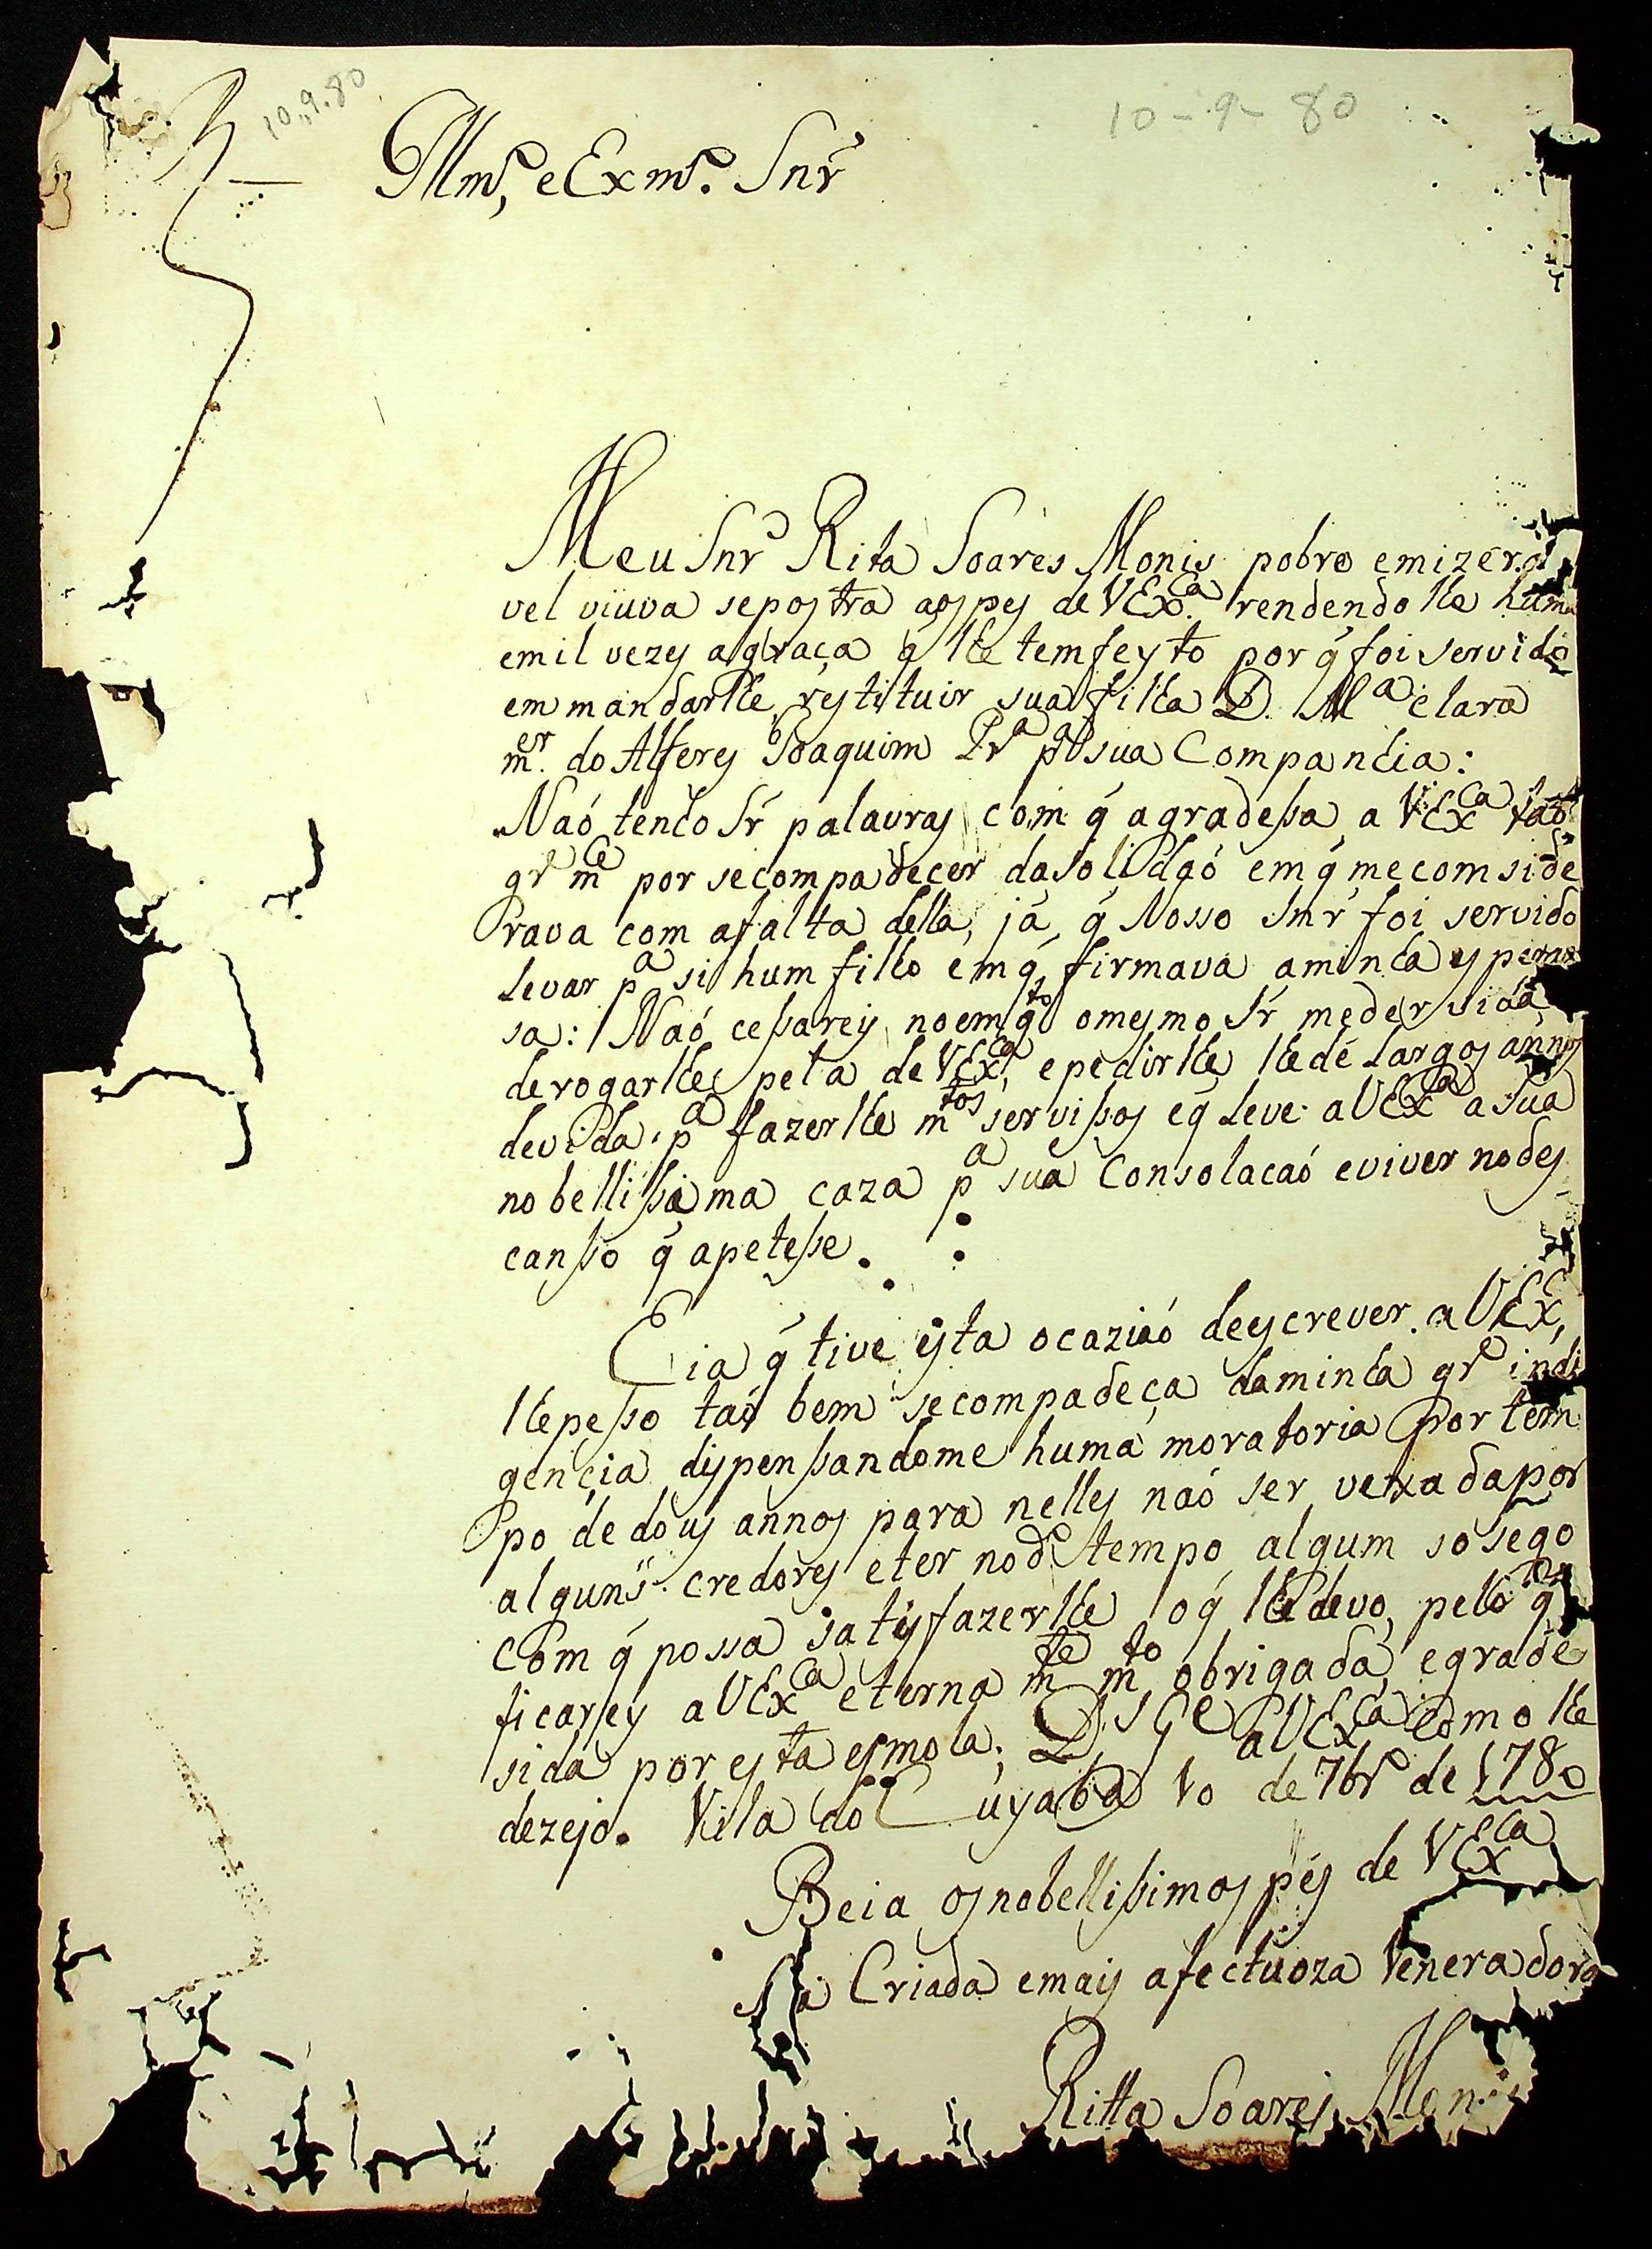 10.9.80
10-9-80
Illmo, e Exmo. Snr
Meu Snr Rita Soares Monis pobre emizera
vel viuva sepostra aos pes de VExca. rendendolhe huma
emil vezes agraça q̃ lhe temfeyto por q̃ foi servido
em mandarlhe restituir sua filha D. Ma clara
mer. do Alferes Joaquim Pra pa sua Companhia:
Naó tenho Sr̃ palavras com q̃ agradeßa a VExca taó
gre mce por secompadecer dasolidaó em q̃ mecomside
rava com afalta della, já q̃ Nosso Snr̃ foi servido
levar pa si hum filho em q̃ firmava aminha
sa: Naó ceßarey noemqto omesmo Sr̃ meder vida
derogarlhe pela de VExca, epedirlhe lhedê largos annos
devida pa fazerlhe mtos servißos eq̃ leve aVExca a sua
nobellißima caza pa sua Consolacaó eviver nodes
canßo q̃ apeteße.
Eia q̃ tive esta ocaziaó deescrever aVExca,
lhepeßo taõ bem secompadeça daminha gre indi
gencia dispenßandome huma moratoria por tem
po de dous annos para nelles naó ser vexadapor
alguns credores eter nodo tempo algum sosego
com q̃ possa satisfazerlhe oq̃ lhedevo, pello q̃
ficarey aVExca eternamte mto obrigada, egrade
sida por esta esmola. Ds Ge aVExca como lhe
dezejo. Vila do Cuyabá 10 de 7bro de 1780
Beia osnobellißimos pés de VExca
Sa Criada emais afectuoza Veneradora
Ritta Soares Monis